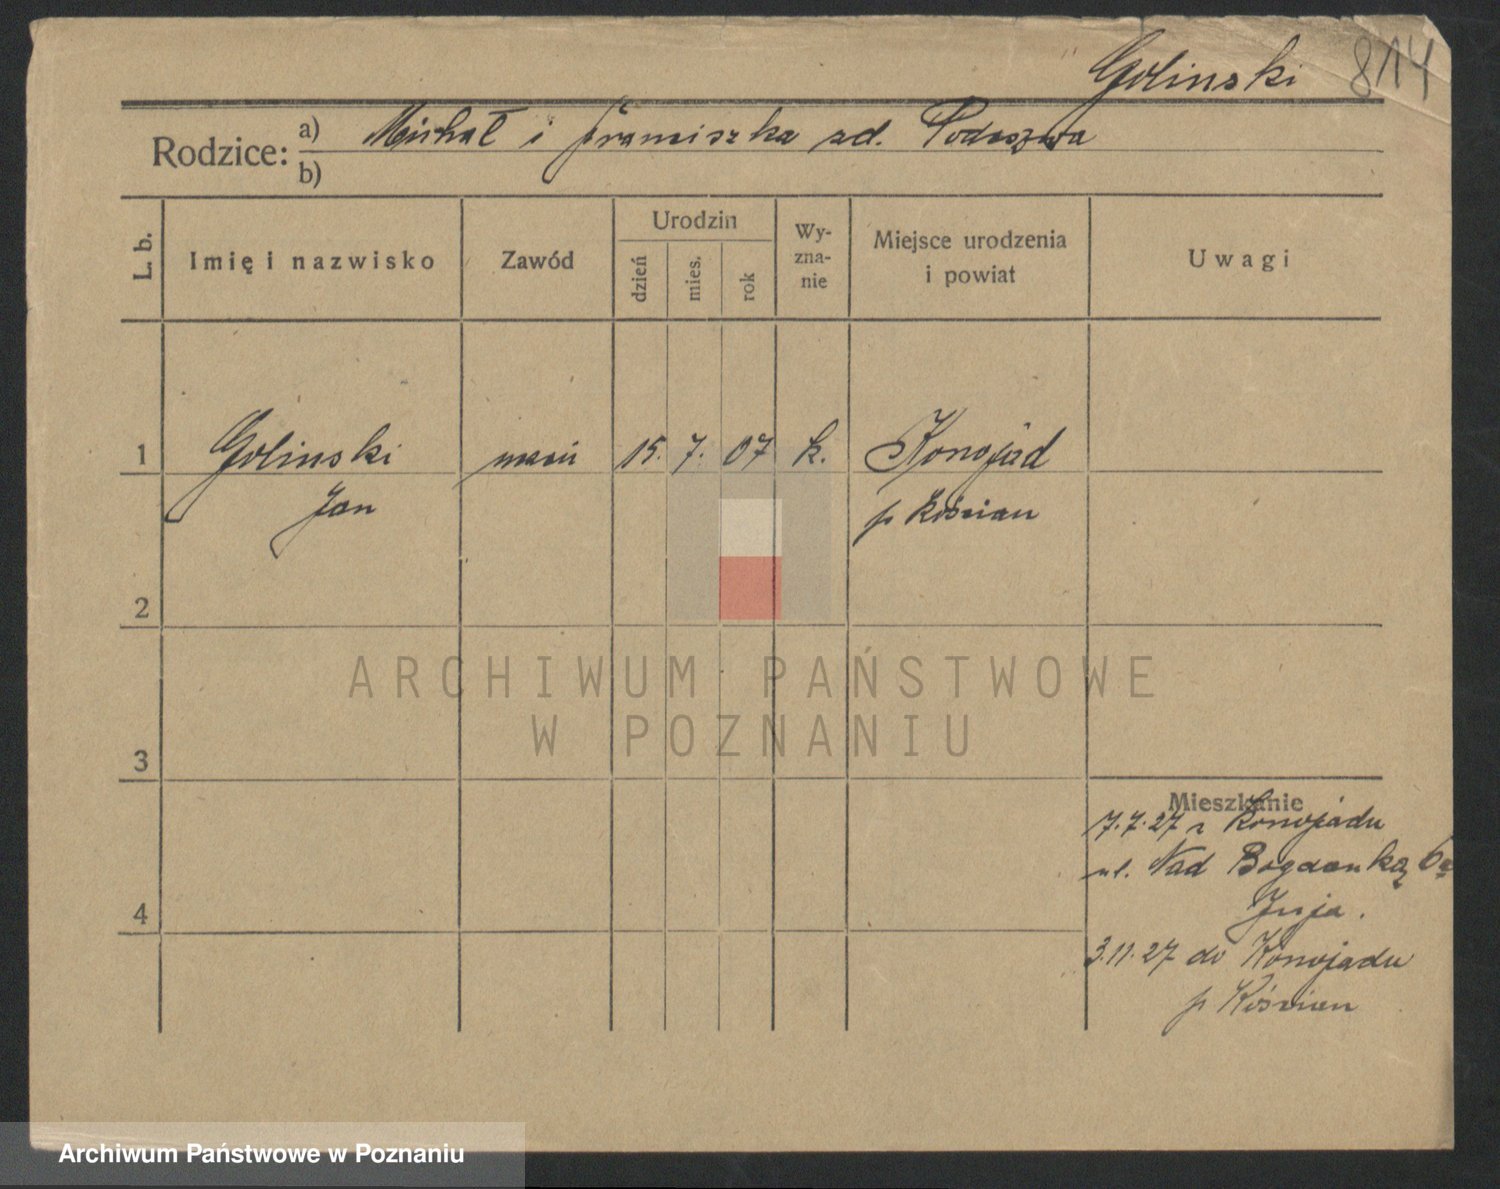 Golinski 814
Rodzice: a) Michał i Franciszka zd. Podeszwa
b)
L. b.
Imię i nazwisko
Zawód
Urodzin
dzień
mies.
rok
Wy-
zna-
nie
Miejsce urodzenia
i powiat
Uwagi
1 Golinski 15. 7. 07 k. Konojad
Jan p Kościan
2
3
4
Mieszkanie
7.7.27 z Konojadu
ul. Nad Bogdanką 6
3.11.27 do Konojadu
p Kościan
ARCHIWUM PAŃSTWOWE
W POZNANIU
Archiwum Państwowe w Poznaniu